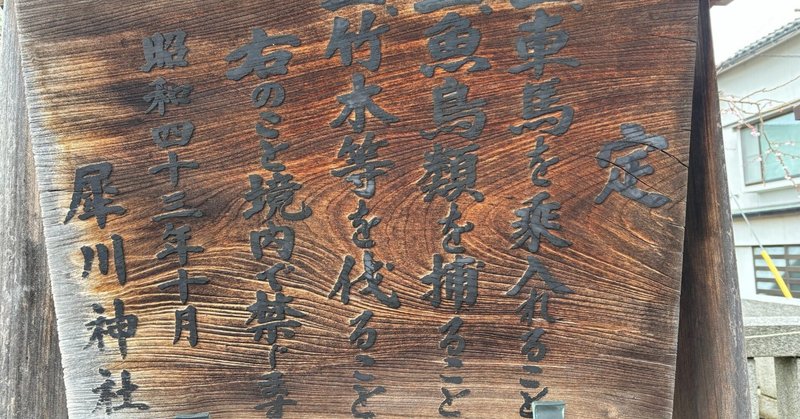 定
一車馬を乗入れること
一魚鳥類を捕ること
一竹木等を伐ること
右のこと境内で禁じます
昭和四十三年十月
犀川神社